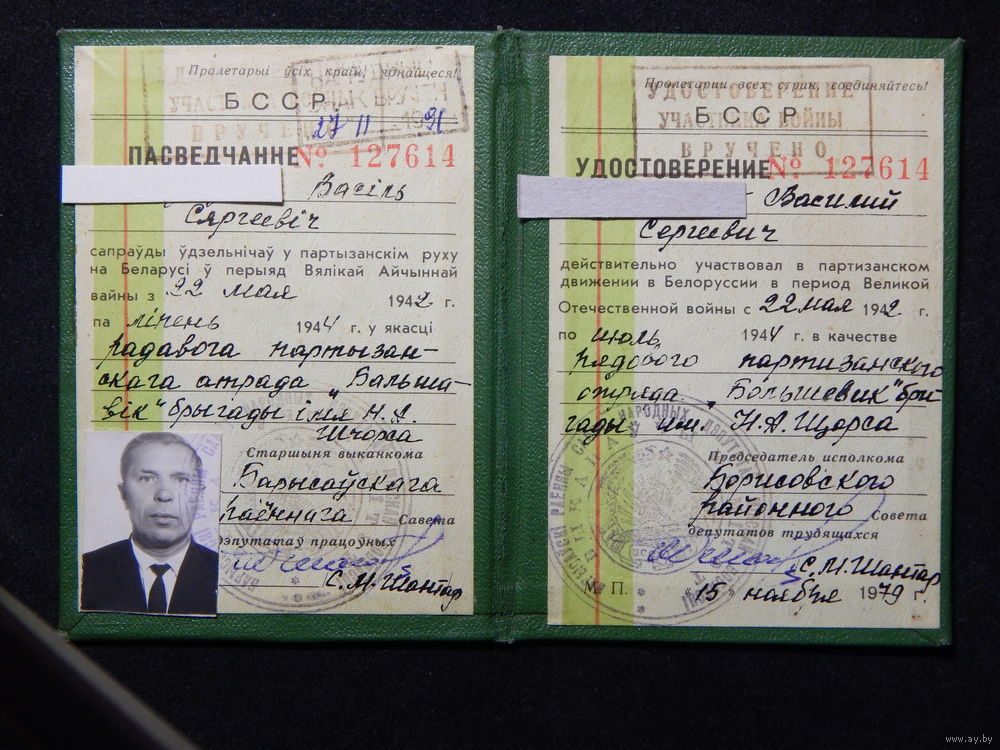 Пралетарыі ўсіх краін, яднайцеся!
БССР
27 11 1991
ПАСВЕДЧАННЕ № 127614
Васіль
Сяргеевіч
сапраўды ўдзельнічаў у партызанскім руху
на Беларусі ў перыяд Вялікай Айчыннай
вайны з 22 мая 1942 г.
па ліпень 1944 г. у якасці
радавога партызан-
скага атрада "Бальша-
вік" брыгады імя Н.А.
Шчорса
Старшыня выканкома
Барысаўскага
раённага Савета
дэпутатаў працоўных
С.М.Шантар
Пролетарии всех стран, соединяйтесь!
УДОСТОВЕРЕНИЕ
БССР
УЧАСТНИКА ВОЙНЫ
ВРУЧЕНО
УДОСТОВЕРЕНИЕ № 127614
Василий
Сергеевич
действительно участвовал в партизанском
движении в Белоруссии в период Великой
Отечественной войны с 22 мая 1942 г.
по июль 1944 г. в качестве
рядового партизанского
отряда "Большевик" бри
гады им. Н.А. Щорса
Председатель исполкома
Борисовского
районного Совета
депутатов трудящихся
С.М.Шантар
М. П. 15 ноября 1979 г.
www.ay.by